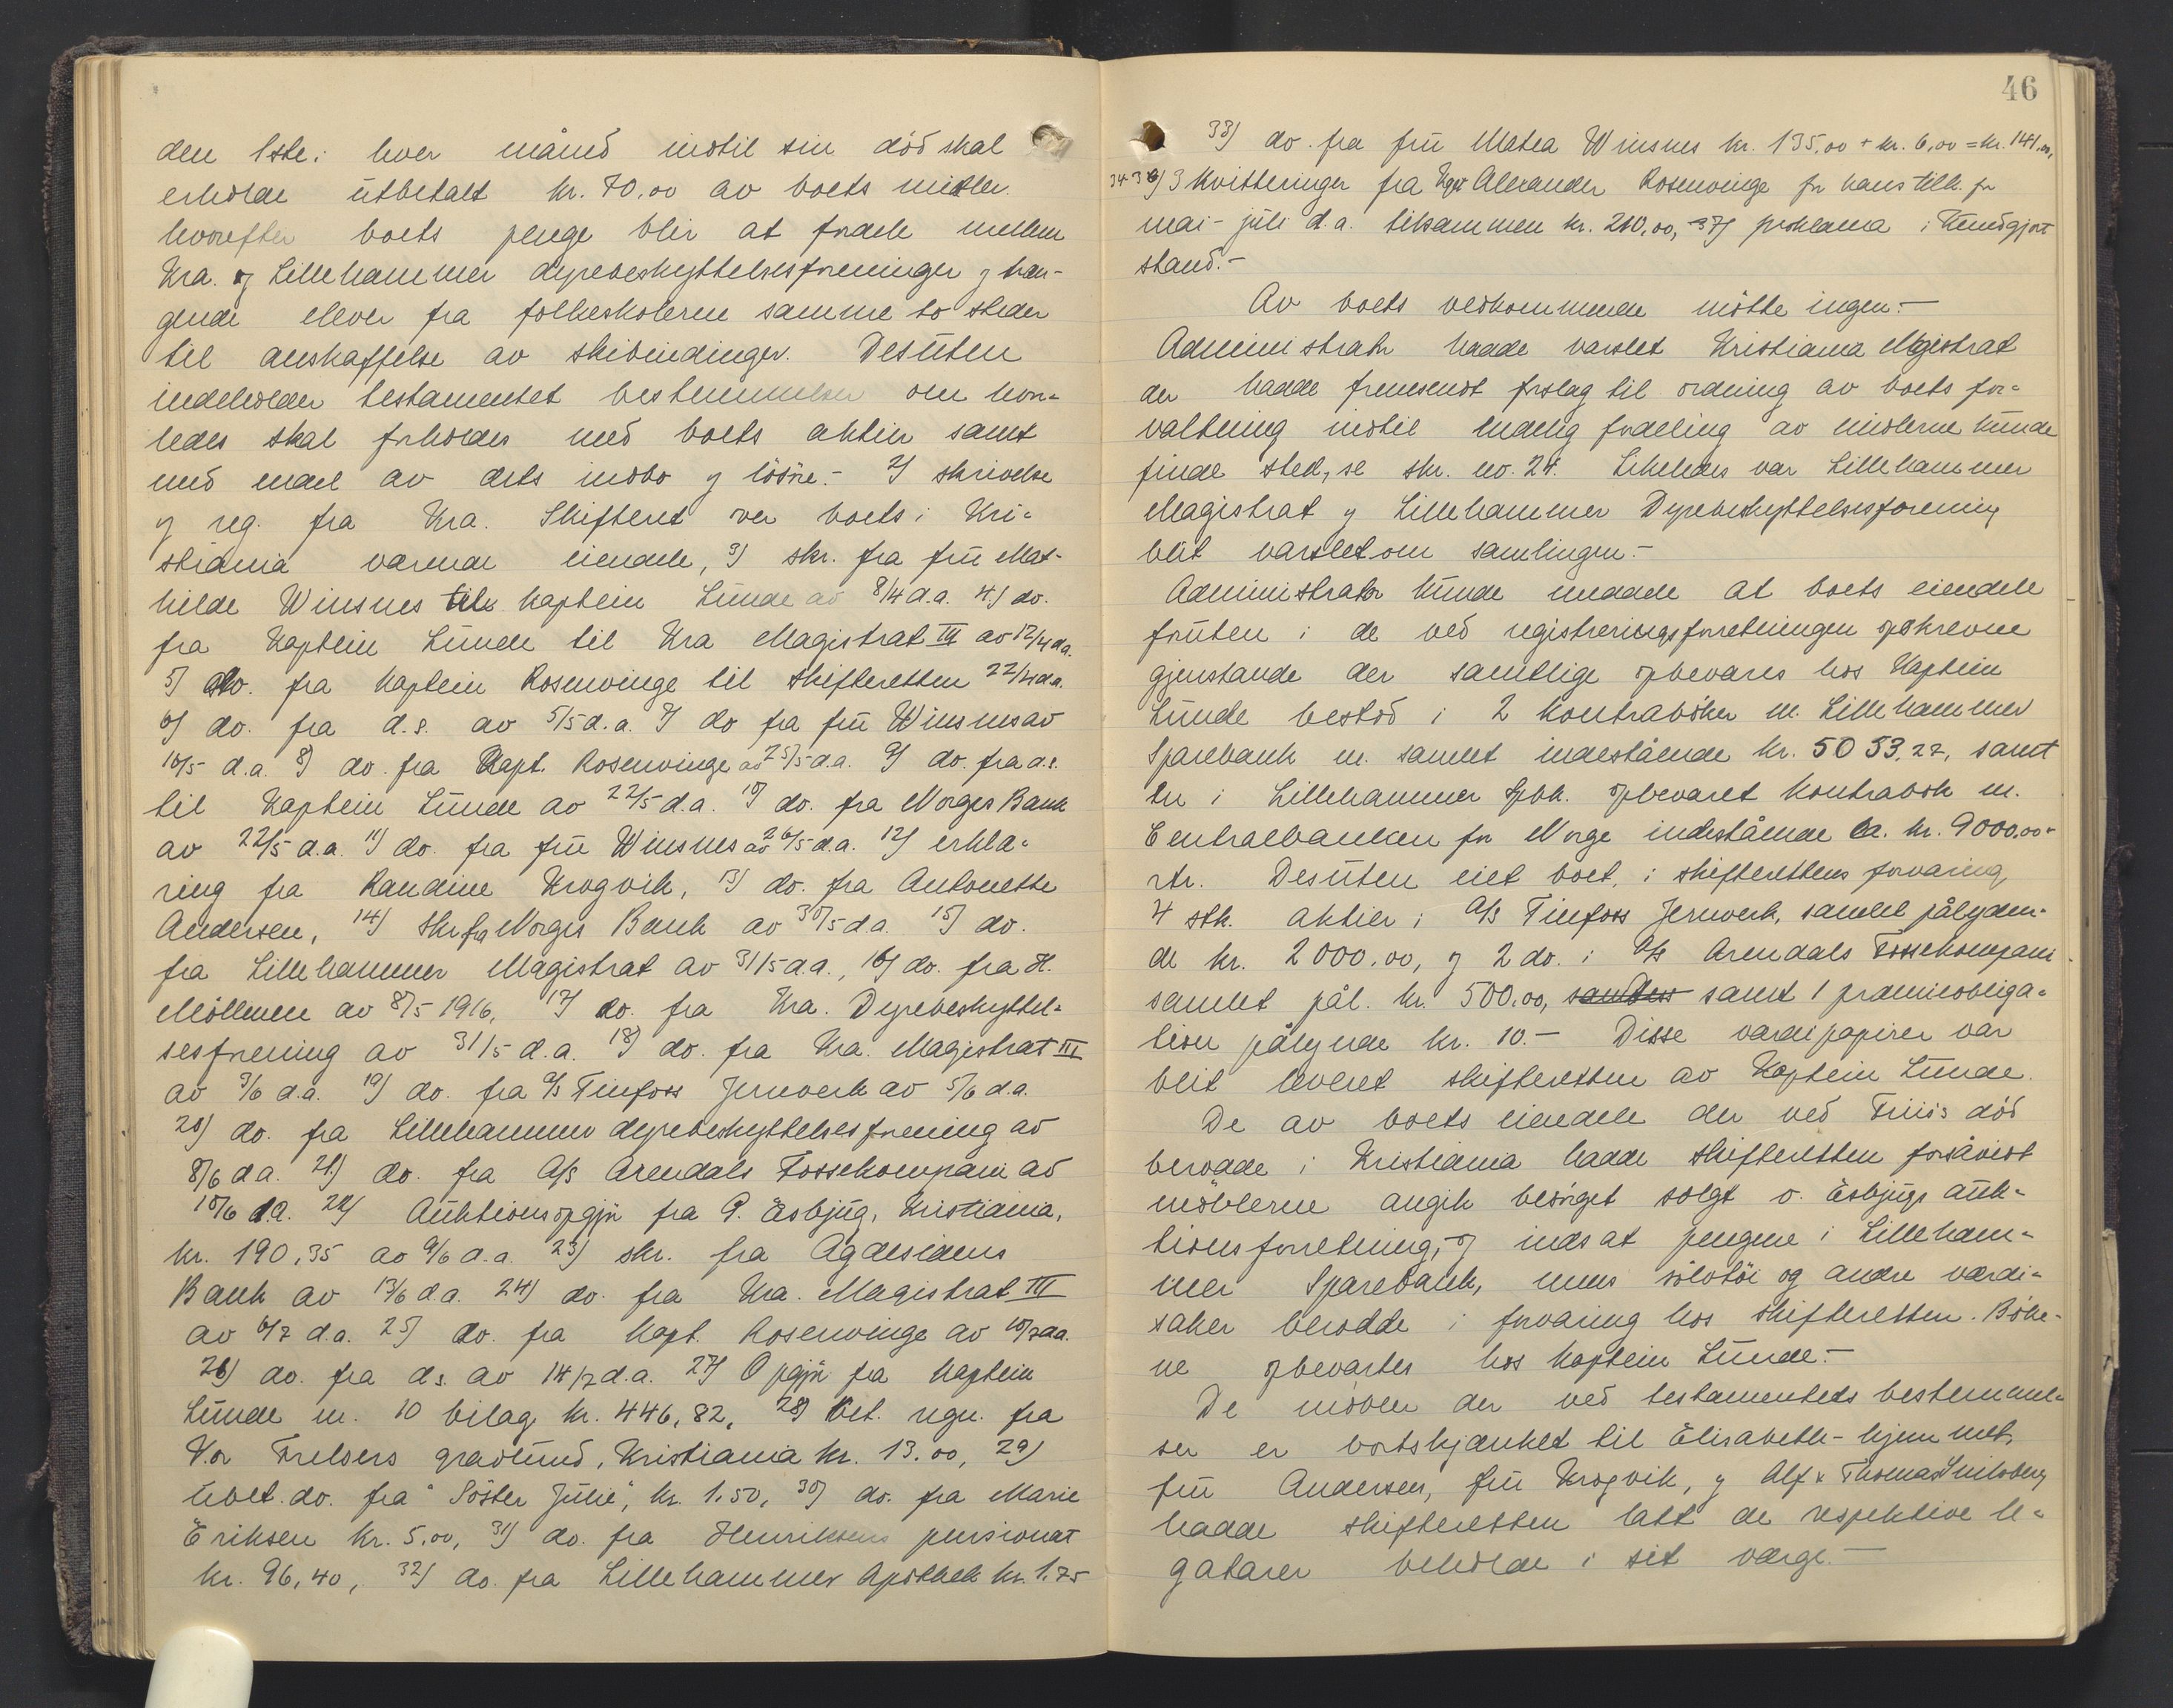 den 1ste i hver måned indtil sin död skal
erholde utbetalt kr. 70,00 av boets midler.
hvorefter boets penge blir at fordele mellem
Kra. og Lillehammer dyrebeskyttelsesforeninger og træn-
gende elever fra folkeskolerne samme to steder
til anskaffelse av skibindinger. Desuten
indeholder testamentet bestemmelser om hvor-
ledes skal forholdes med boets aktier samt
med endel av dets indbo og lösöre.- 2) skrivelse
og reg. fra Kra. Skifteret over boets i Kri-
stiania værende eiendele, 3) skr. fra fru Mat-
hilde Winsnes til kaptein Lunde av 8/4 d.a. 4) do.
fra Kaptein Lunde til Kra Magistrat III av 12/4 d.a.
5) do. fra kaptein Rosenvinge til skifteretten 22/4 d.a.
6) do. fra d.s. av 5/5 d.a. 7) do fra fru Winsnes av
16/5 d.a. 8) do. fra Kapt. Rosenvinge av 25/5 d.a. 9) do. fra d.s.
til Kaptein Lunde av 22/5 d.a. 10) do. fra Norges Bank
av 22/5 d.a. 11) do. fra fru Winsnes av 26/5 d.a. 12) erklæ-
ring fra Randine Krogvik, 13) do. fra Antonette
Andersen, 14) Skr fra Norges Bank av 30/5 d.a. 15) do.
fra Lillehammer Magistrat av 31/5 d.a., 16) do. fra H.
Möllmen av 8/5 1916, 17) do. fra Kra. Dyrebeskyttel-
sesforening av 31/5 d.a. 18) do. fra Kra. Magistrat III
av 3/6 d.a. 19) do. fra A/S Tinfoss Jernverk av 5/6 d.a.
20) do. fra Lillehammer dyrebeskyttelsesforening av
8/6 d.a. 21) do. fra A/S Arendals Fossekompani av
10/6 d.a. 22) Auktionsopgjör fra P. Esbjug, Kristiania,
kr. 190,35 av 9/6 d.a. 23) skr. fra Agdesidens
Bank av 13/6 d.a. 24) do. fra Kra. Magistrat III
av 6/7 d.a. 25) do. fra kapt. Rosenvinge av 10/7 d.a.
26) do. fra d.s. av 14/7 d.a. 27) Opgjör fra kaptein
Lunde m. 10 bilag kr. 446,82, 28) Bet. regn. fra
Vor Frelsers gravlund, Kristiania kr. 13.00, 29)
ubet. do. fra "Söster Julie", kr. 1.50, 30) do. fra Marie
Eriksen kr. 5,00, 31) do. fra Henriksens pensionat
kr. 96,40, 32) do. fra Lillehammer Apothek kr. 1.75
46
33) do. fra fru Matea Winsnes kr. 135,00 + kr. 6,00 = kr. 141,00,
34-36) 3 kvitteringer fra Kapt Alexander Rosenvinge for hans tilk. for
mai - juli d.a. tilsammen kr. 210,00, -37) proklama i kundgjort
stand.-
Av boets vedkommende mötte ingen.-
Administrator hadde varslet Kristiania Magistrat
der hadde fremsendt forslag til ordning av boets for-
valtning indtil endelig fordeling av midlerne kunde
finde sted, se skr. no. 24. Likeledes var Lillehammer
Magistrat og Lillehammer Dyrebeskyttelsesforening
blit varslet om samlingen.-
Administrator kunde meddele at boets eiendele
foruten i de ved registreringsforretningen opskrevne
gjenstande der samtlige opbevares hos Kaptein
Lunde bestod i 2 kontraböker m. Lillehammer
Sparebank m. samlet indestående kr. 5053,27, samt
en i Lillehammer Spbk. opbevaret kontrabok m.
Centralbanken for Norge indestående ca. kr. 9000,00 +
rtr. Desuten eiet boet, i skifterettens forvaring
4 stk. aktier i A/S Tinfoss Jernverk, samlet pålyden-
de kr. 2000.00, og 2 do. i A/S Arendals Fossekompani
samlet pål. kr. 500,00, samt 1 præmieobliga-
tion pålydende kr. 10.- Disse værdipapirer var
blit leveret skifteretten av Kaptein Lunde.
De av boets eiendele der ved Friis död
beroddde i Kristiania hadde skifteretten forsåvidt
möblerne angik besörget solgt v. Esbjugs auk-
tionsforretning, og indsat pengene i Lilleham-
mer Sparebank, mens sölvtöi og andre værdi-
saker berodde i forvaring hos skifteretten. Böke-
ne opbevartes hos kaptein Lunde.-
De möbler der ved testamentets bestemmel-
ser er bortskjænket til Elisabeth-hjemmet,
fru Andersen, fru Krogvik, og Alf & Thomas
hadde skifteretten latt de respektive le-
gatarer beholde i sit værge.-